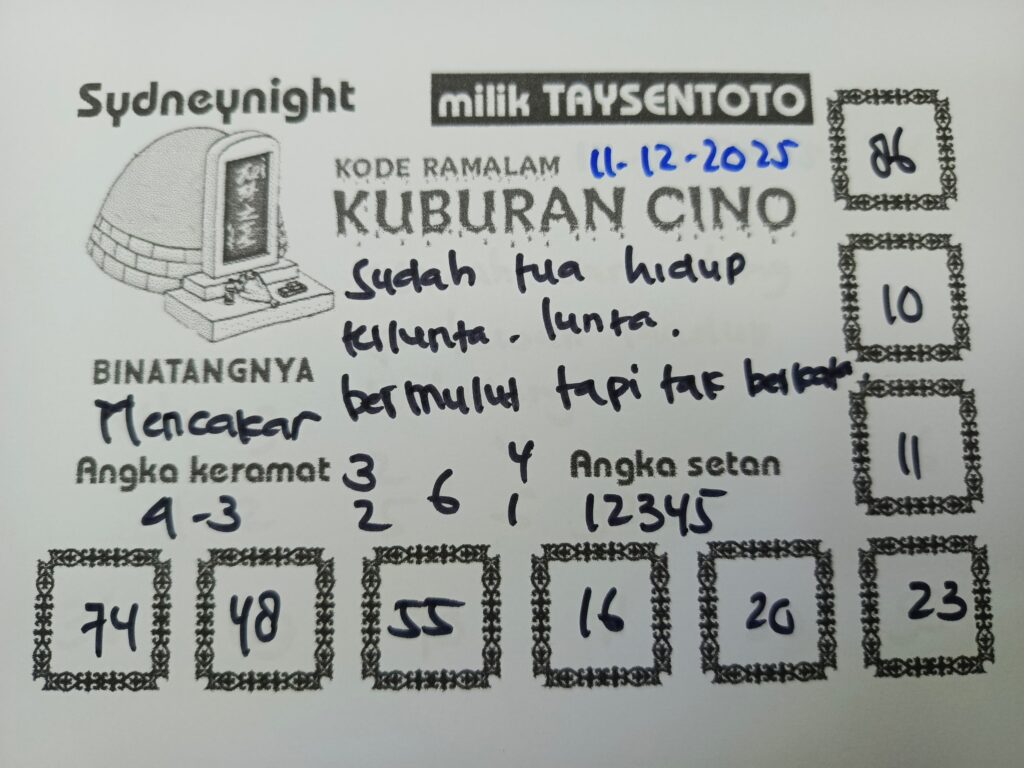 Sydneynight
milik TAYSENTOTO
KODE RAMALAM 11-12-2025
KUBURAN CINO
sudah tua hidup
terlunta. lunta.
bermulut tapi tak berkata.
BINATANGNYA
Mencakar
Angka keramat
9-3
3 6 4
2 1
Angka setan
12345
86
10
11
74 48 55 16 20 23